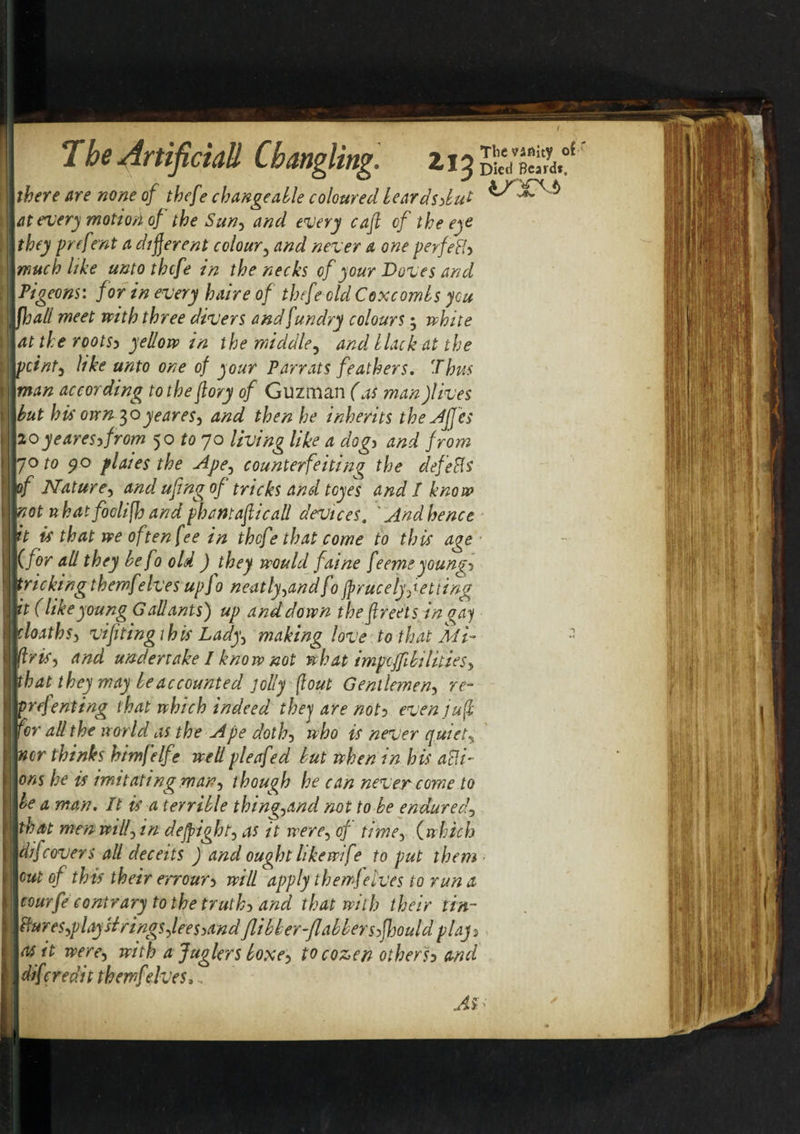 The Artificiall Changling. 213
The vanity of
Died Beards.
there are none of theſe changeable coloured beards, but
at every motion of the Sun, and every caſt of the eye
they preſent a different colour, and never a one perfect,
much like unto thoſe in the necks of your Doves and
Pigeons: for in every haire of theſe old Coxcombs you
ſhall meet with three divers and ſundry colours; white
at the roots, yellow in the middle, and black at the
point, like unto one of your Parrats feathers. Thus
man according to the ſtory of Guzman (as man) lives
but his own 30 yeares, and then he inherits the Aſſes
20 yeares, from 50 to 70 living like a dog, and from
70 to 90 plaies the Ape, counterfeiting the defects
of Nature, and uſing of tricks and toyes and I know
not what fooliſh and phantaſticall devices. And hence
it is that we often ſee in thoſe that come to this age
(for all they be ſo old) they would faine ſeeme young,
tricking themſelves up ſo neatly, and ſo ſprucely, jetting
it (like young Gallants) up and down the ſtreets in gay
cloaths, viſiting this Lady, making love to that Mi-
ſtris, and undertake I know not what impoſſibilities,
that they may be accounted jolly ſtout Gentlemen, re-
preſenting that which indeed they are not, even juſt
for all the world as the Ape doth, who is never quiet,
nor thinks himſelfe well pleaſed but when in his acti-
ons he is imitating man, though he can never come to
be a man. It is a terrible thing, and not to be endured,
that men will, in deſpight, as it were, of time, (which
diſcovers all deceits) and ought likewiſe to put them
out of this their errour, will apply themſelves to run a
courſe contrary to the truth, and that with their tin-
ctures, playſtrings, lees, and ſlibber-ſlabbers, ſhould play,
as it were, with a Juglers boxe, to cozen others, and
diſcredit themſelves.
As